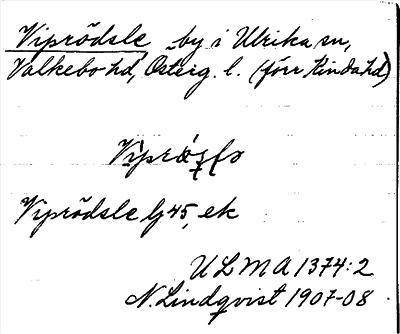 Viprödsle, by i Ulrika sn,
Valkebo hd, Österg. l. (förr Kinda hd)
Viprödsle lj 45, ek
ULMA 1374:2
N. Lindqvist 1907-08